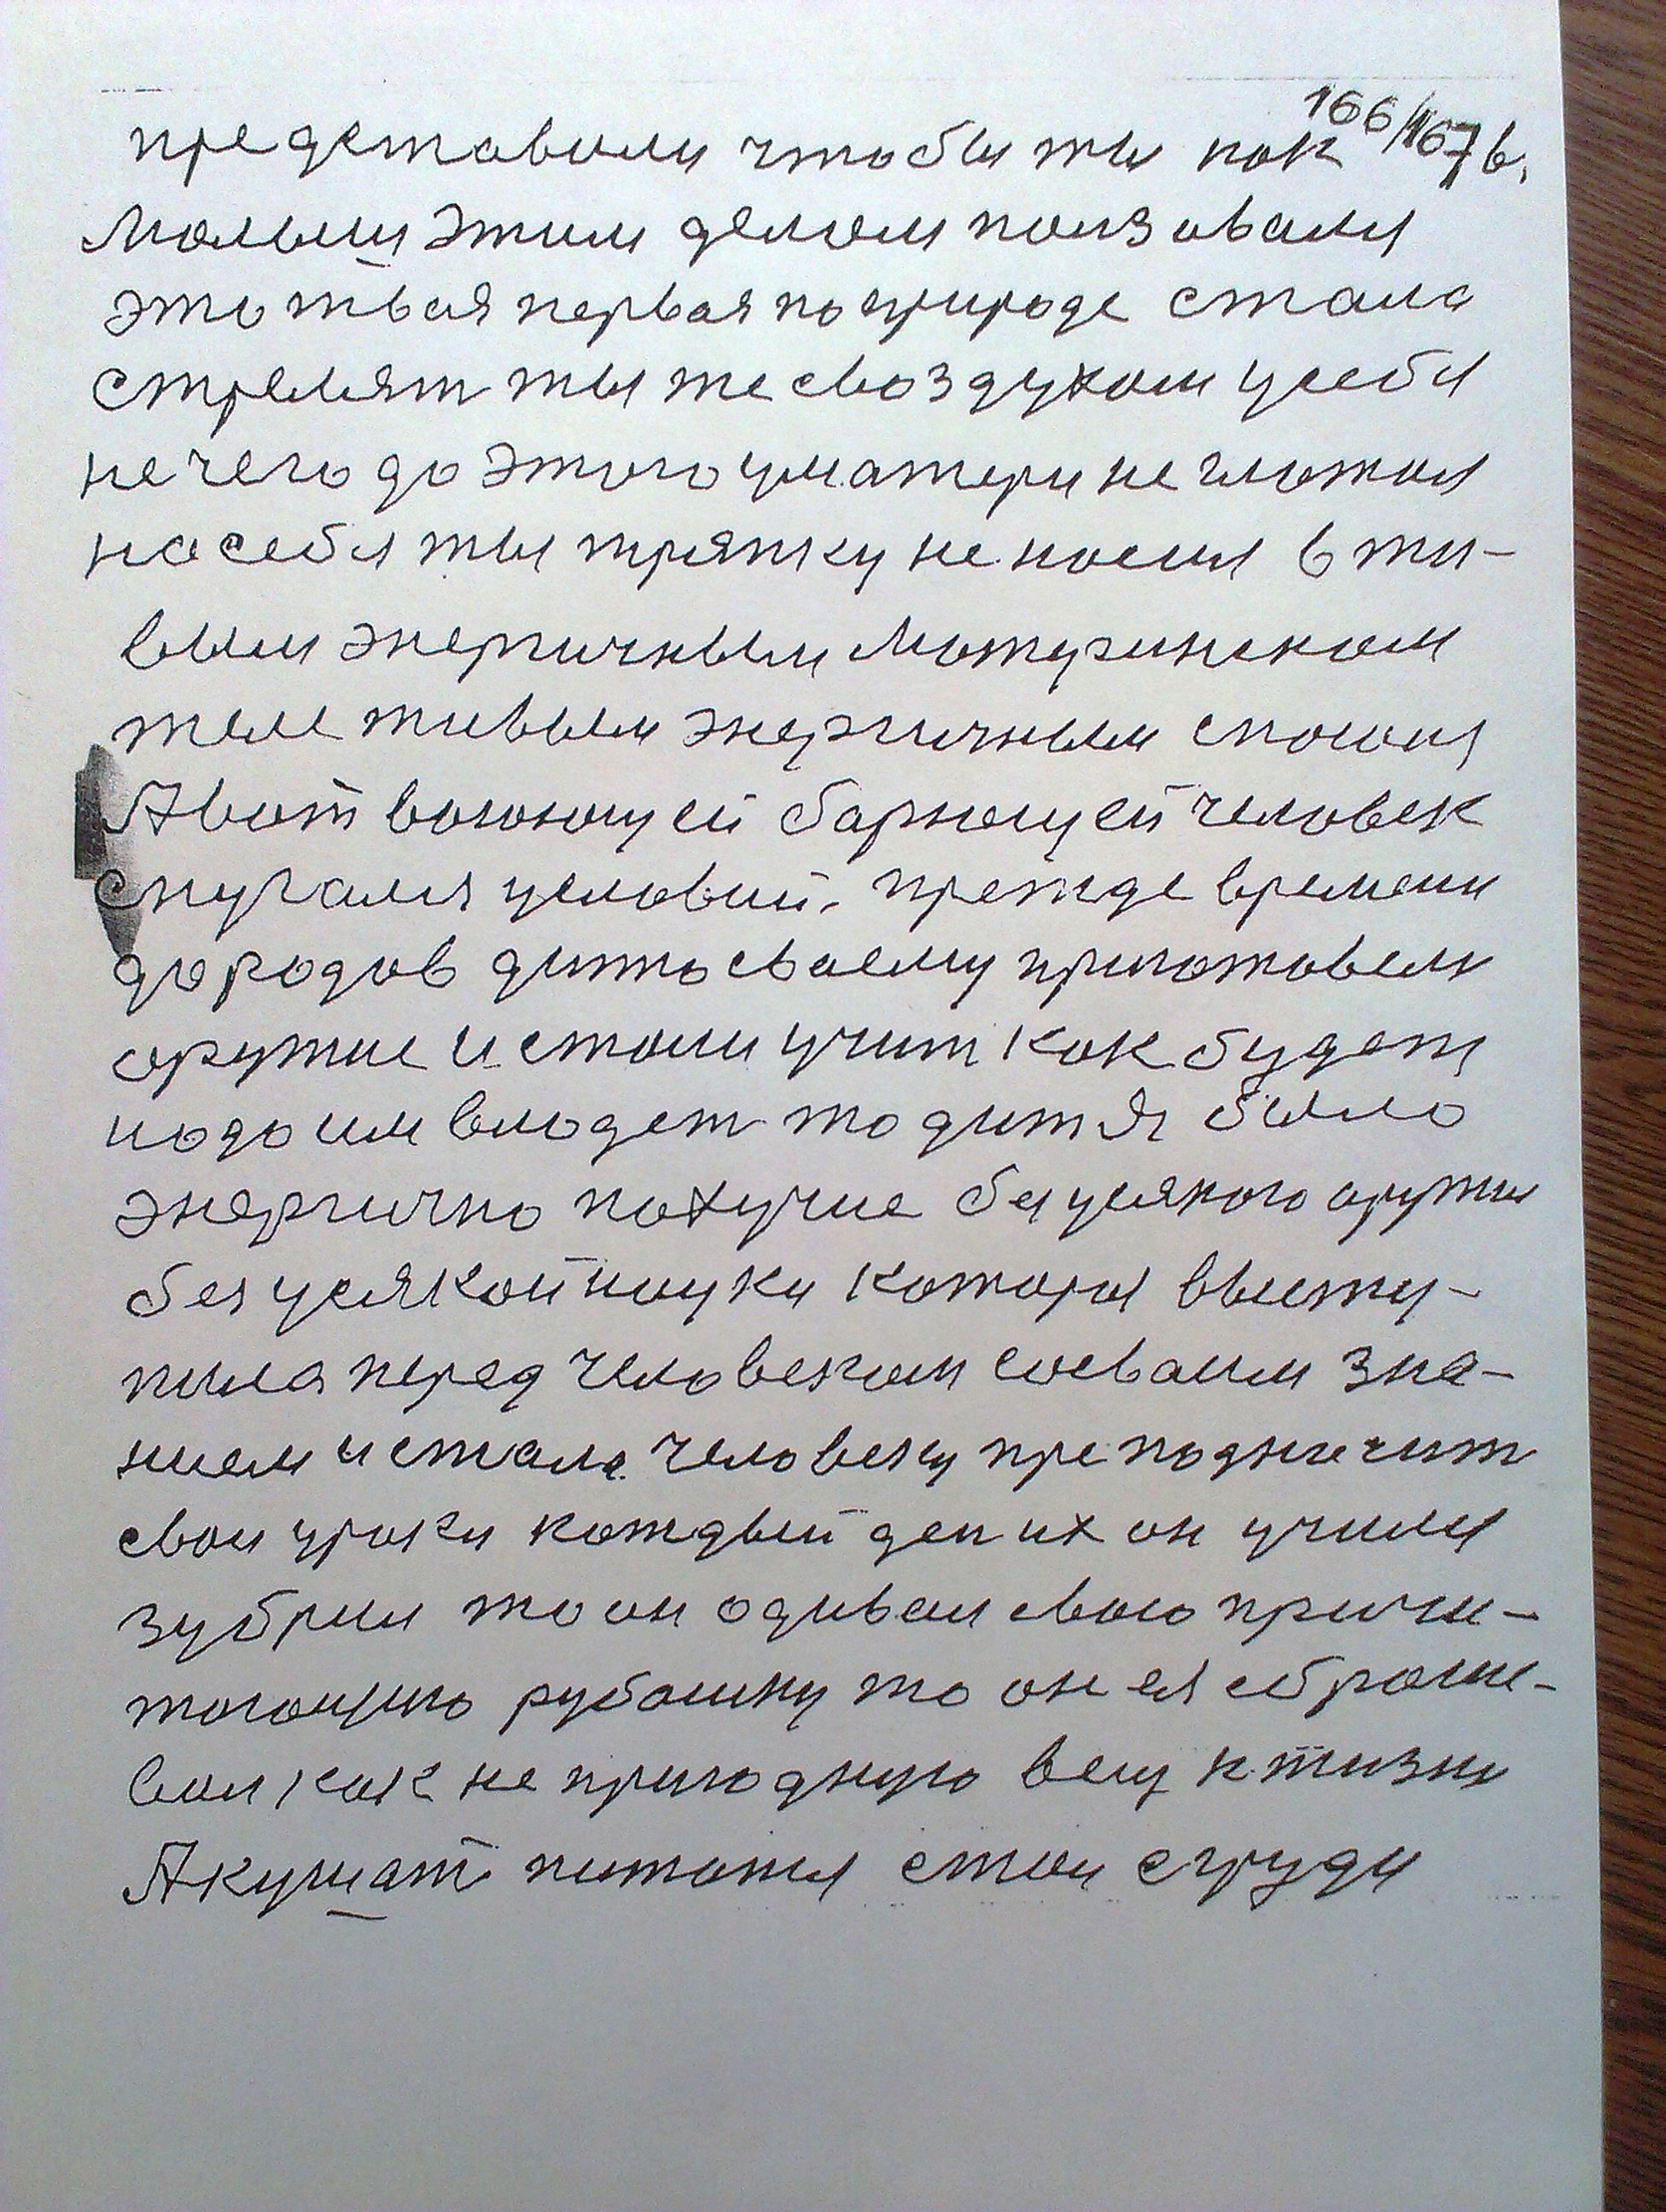 166/167 в.
представили чтобы ты как
малыш этим делом ползовался
это твая первая по природе стала
стрелят ты же своздухом усебя
не чего до этого уматери не гложил
на себя ты тряпку не носил в жи-
вым энергичным матуринском
теле живым энергичным споконя
А вот воюющей борющей человек
спугался условий. прежде времени
до родов дитю своему приготовели
оружие и стали учит как будет
надо им владет то дитя было
энергично пахучие без усякого оружия
без усякой науки каторая высту-
пила перед человеком соеваим зна-
нием и стала человеку преподничит
свои уроки каждый ден их он учился
зубрил то он одивал свою причи-
тающую рубашку то он ея сбраши-
вал как не пригодную вещ к жизни
А кушат питатся стал с груди